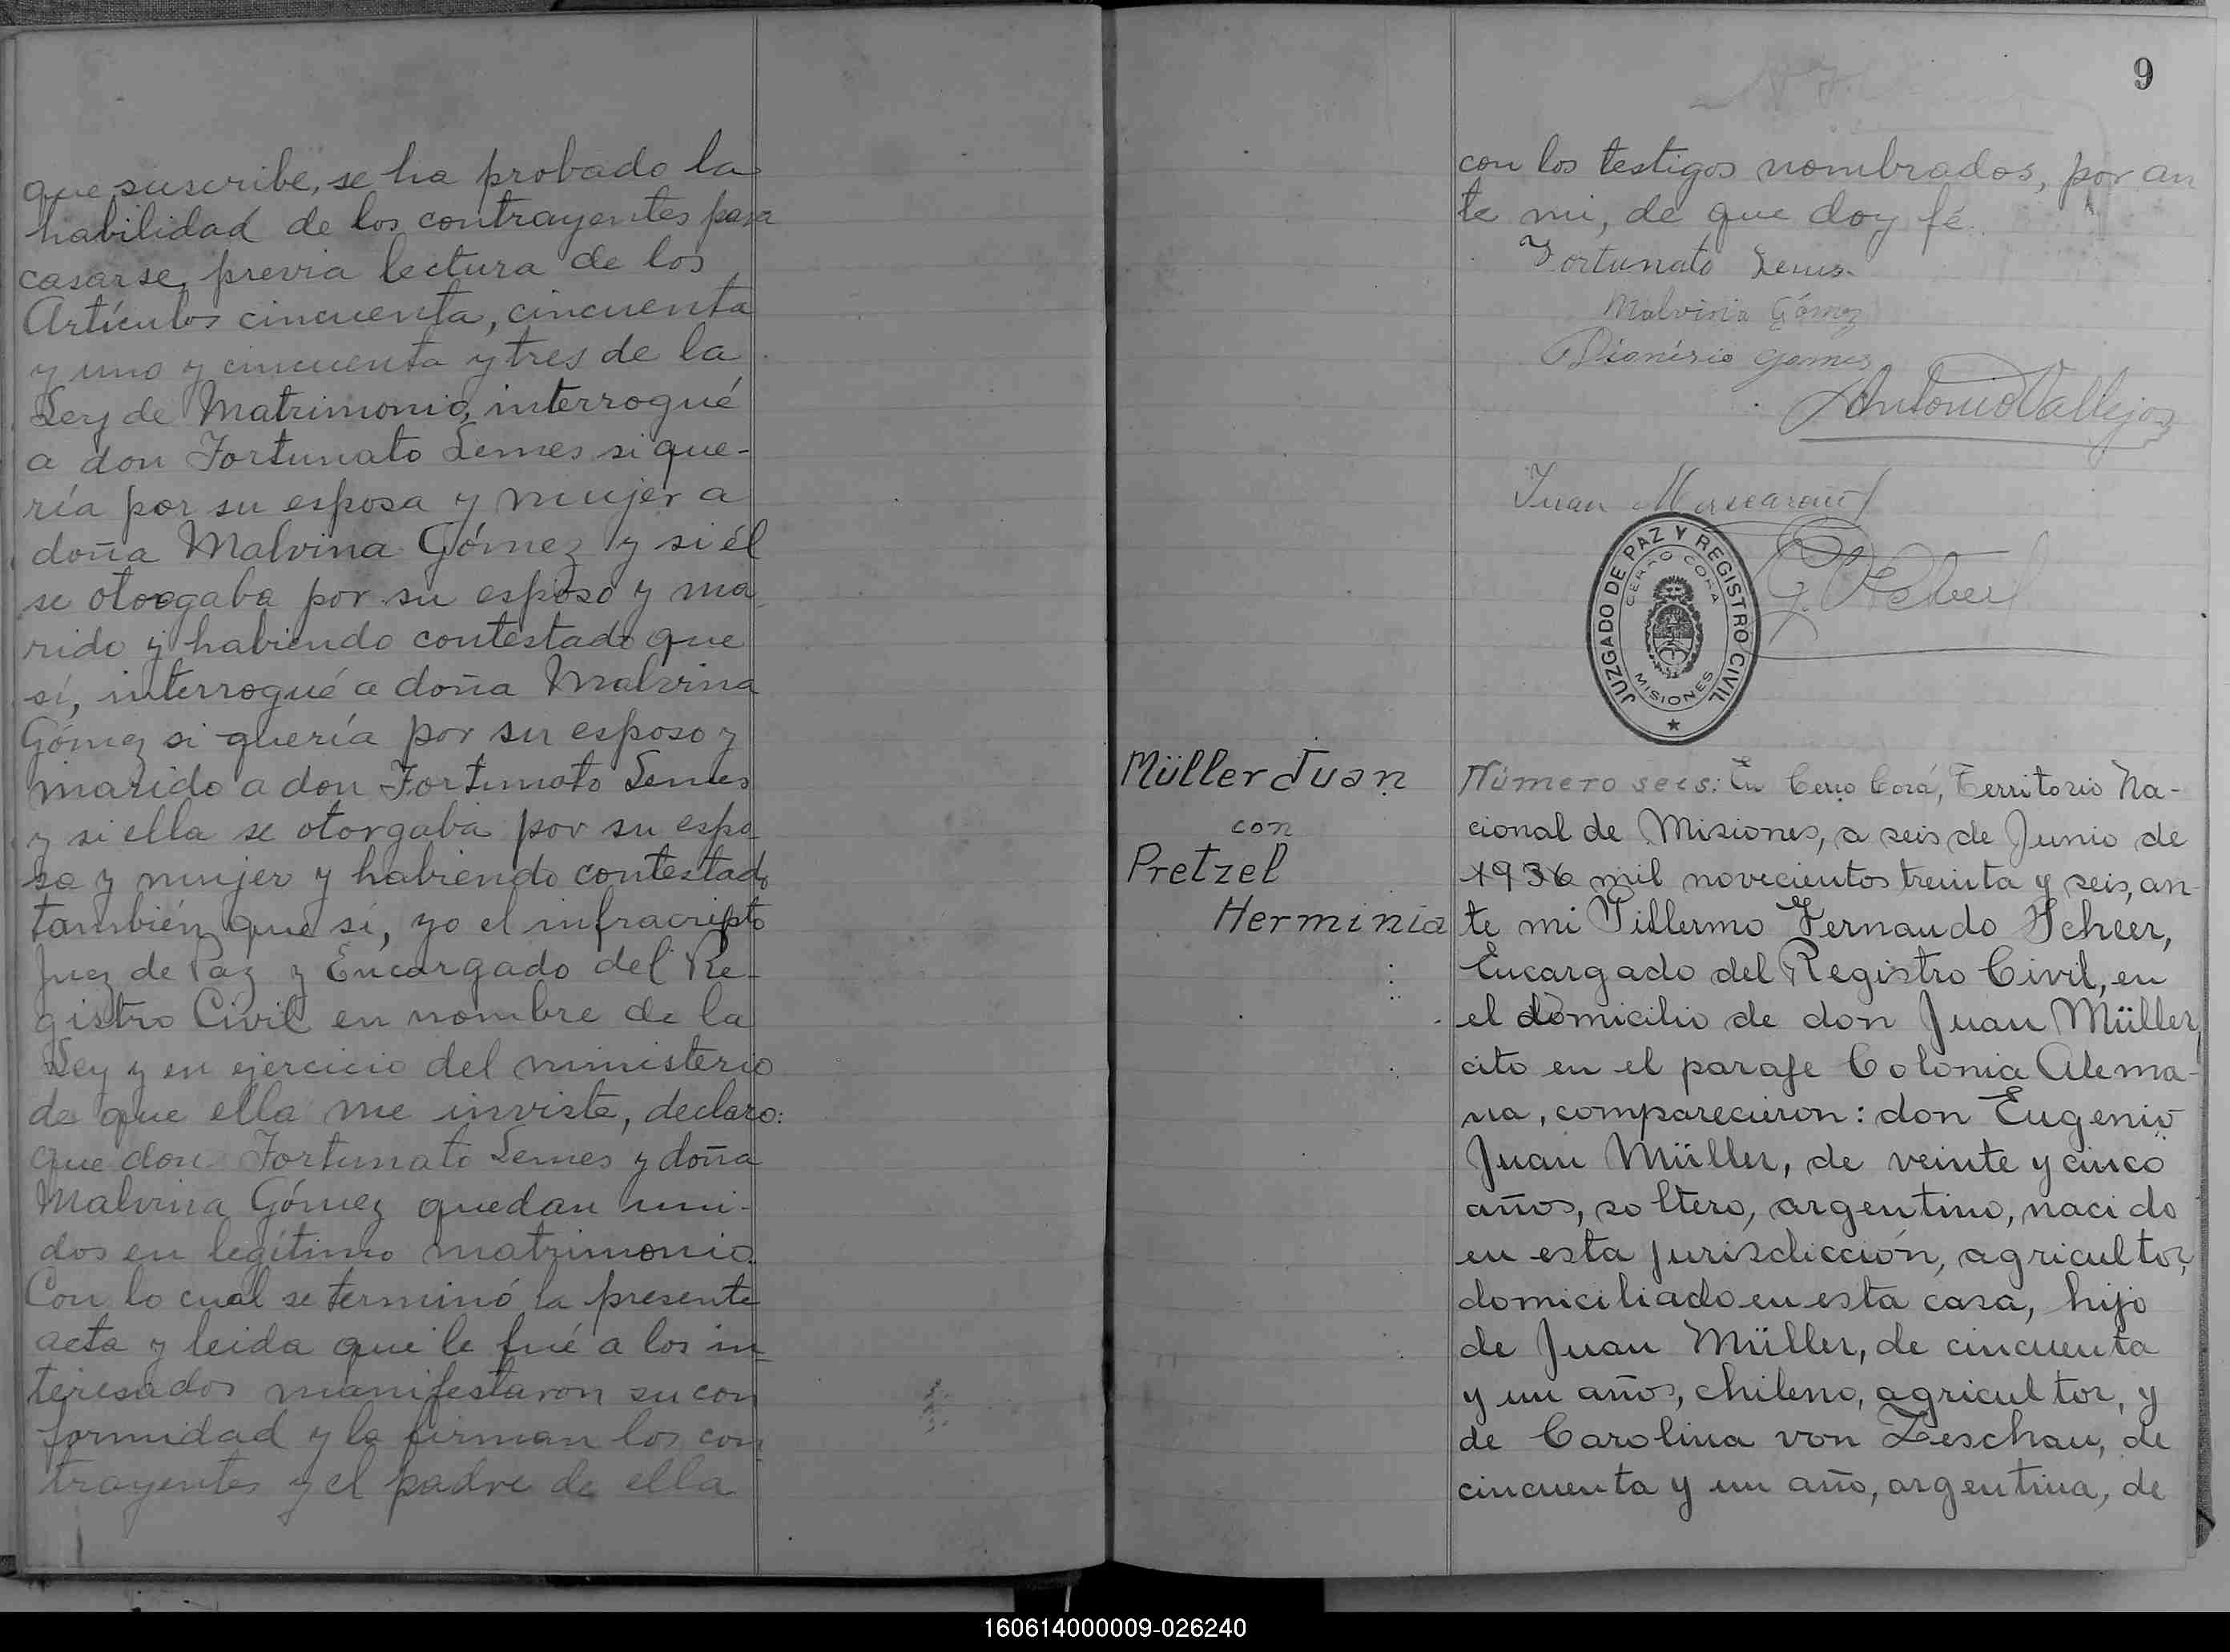 que suscribe, se ha probado la
habilidad de los contrayentes para
casarse, previa lectura de los
Artículos cincuenta, cincuenta
y uno y cincuenta y tres de la
Ley de Matrimonio, interrogué
a don Fortunato Lemes si que-
ría por su esposa y mujer a
doña Malvina Gómez y si él
se otorgaba por su esposo y ma
rido y habiendo contestado que
sí, interrogué a doña Malvina
Gómez si quería por su esposo y
marido a don Fortunato Lemes
y si ella se otorgaba por su espo
sa y mujer y habiendo contestado
también que sí, yo el infracripto
Juez de Paz y Encargado del Re-
gistro Civil en nombre de la
Ley y en ejercicio del ministerio
de que ella me inviste, declaro:
que don Fortunato Lemes y doña
Malvina Gómez quedan uni-
dos en legítimo matrimonio.
Con lo cual se terminó la presente
acta y leida que le fué a los in-
teresados manifestaron su con
formidad y la firman los con
trayentes y el padre de ella
9
con los testigos nombrados, por an
te mi, de que doy fé.
Fortunato Lemes
Malvina Gómez
Dionisio Gomes
Antonio Vallejos
Juan
JUZGADO DE PAZ Y REGISTRO CIVIL
CERRO CORA
MISIONES
Müller Juan
con
Pretzel
Herminia
Número seis: En Cerro Corá, Territorio Na-
cional de Misiones, a seis de Junio de
1936 mil novecientos treinta y seis, an-
te mi Gillermo Fernando Scheer,
Encargado del Registro Civil, en
el domicilio de don Juan Müller,
cito en el paraje Colonia Alema-
na, comparecieron: don Eugenio
Juan Müller, de veinte y cinco
años, soltero, argentino, nacido
en esta jurisdicción, agricultor,
domiciliado en esta casa, hijo
de Juan Müller, de cincuenta
y un años, chileno, agricultor, y
de Carolina von Zeschau, de
cincuenta y un año, argentina, de
160614000009-026240